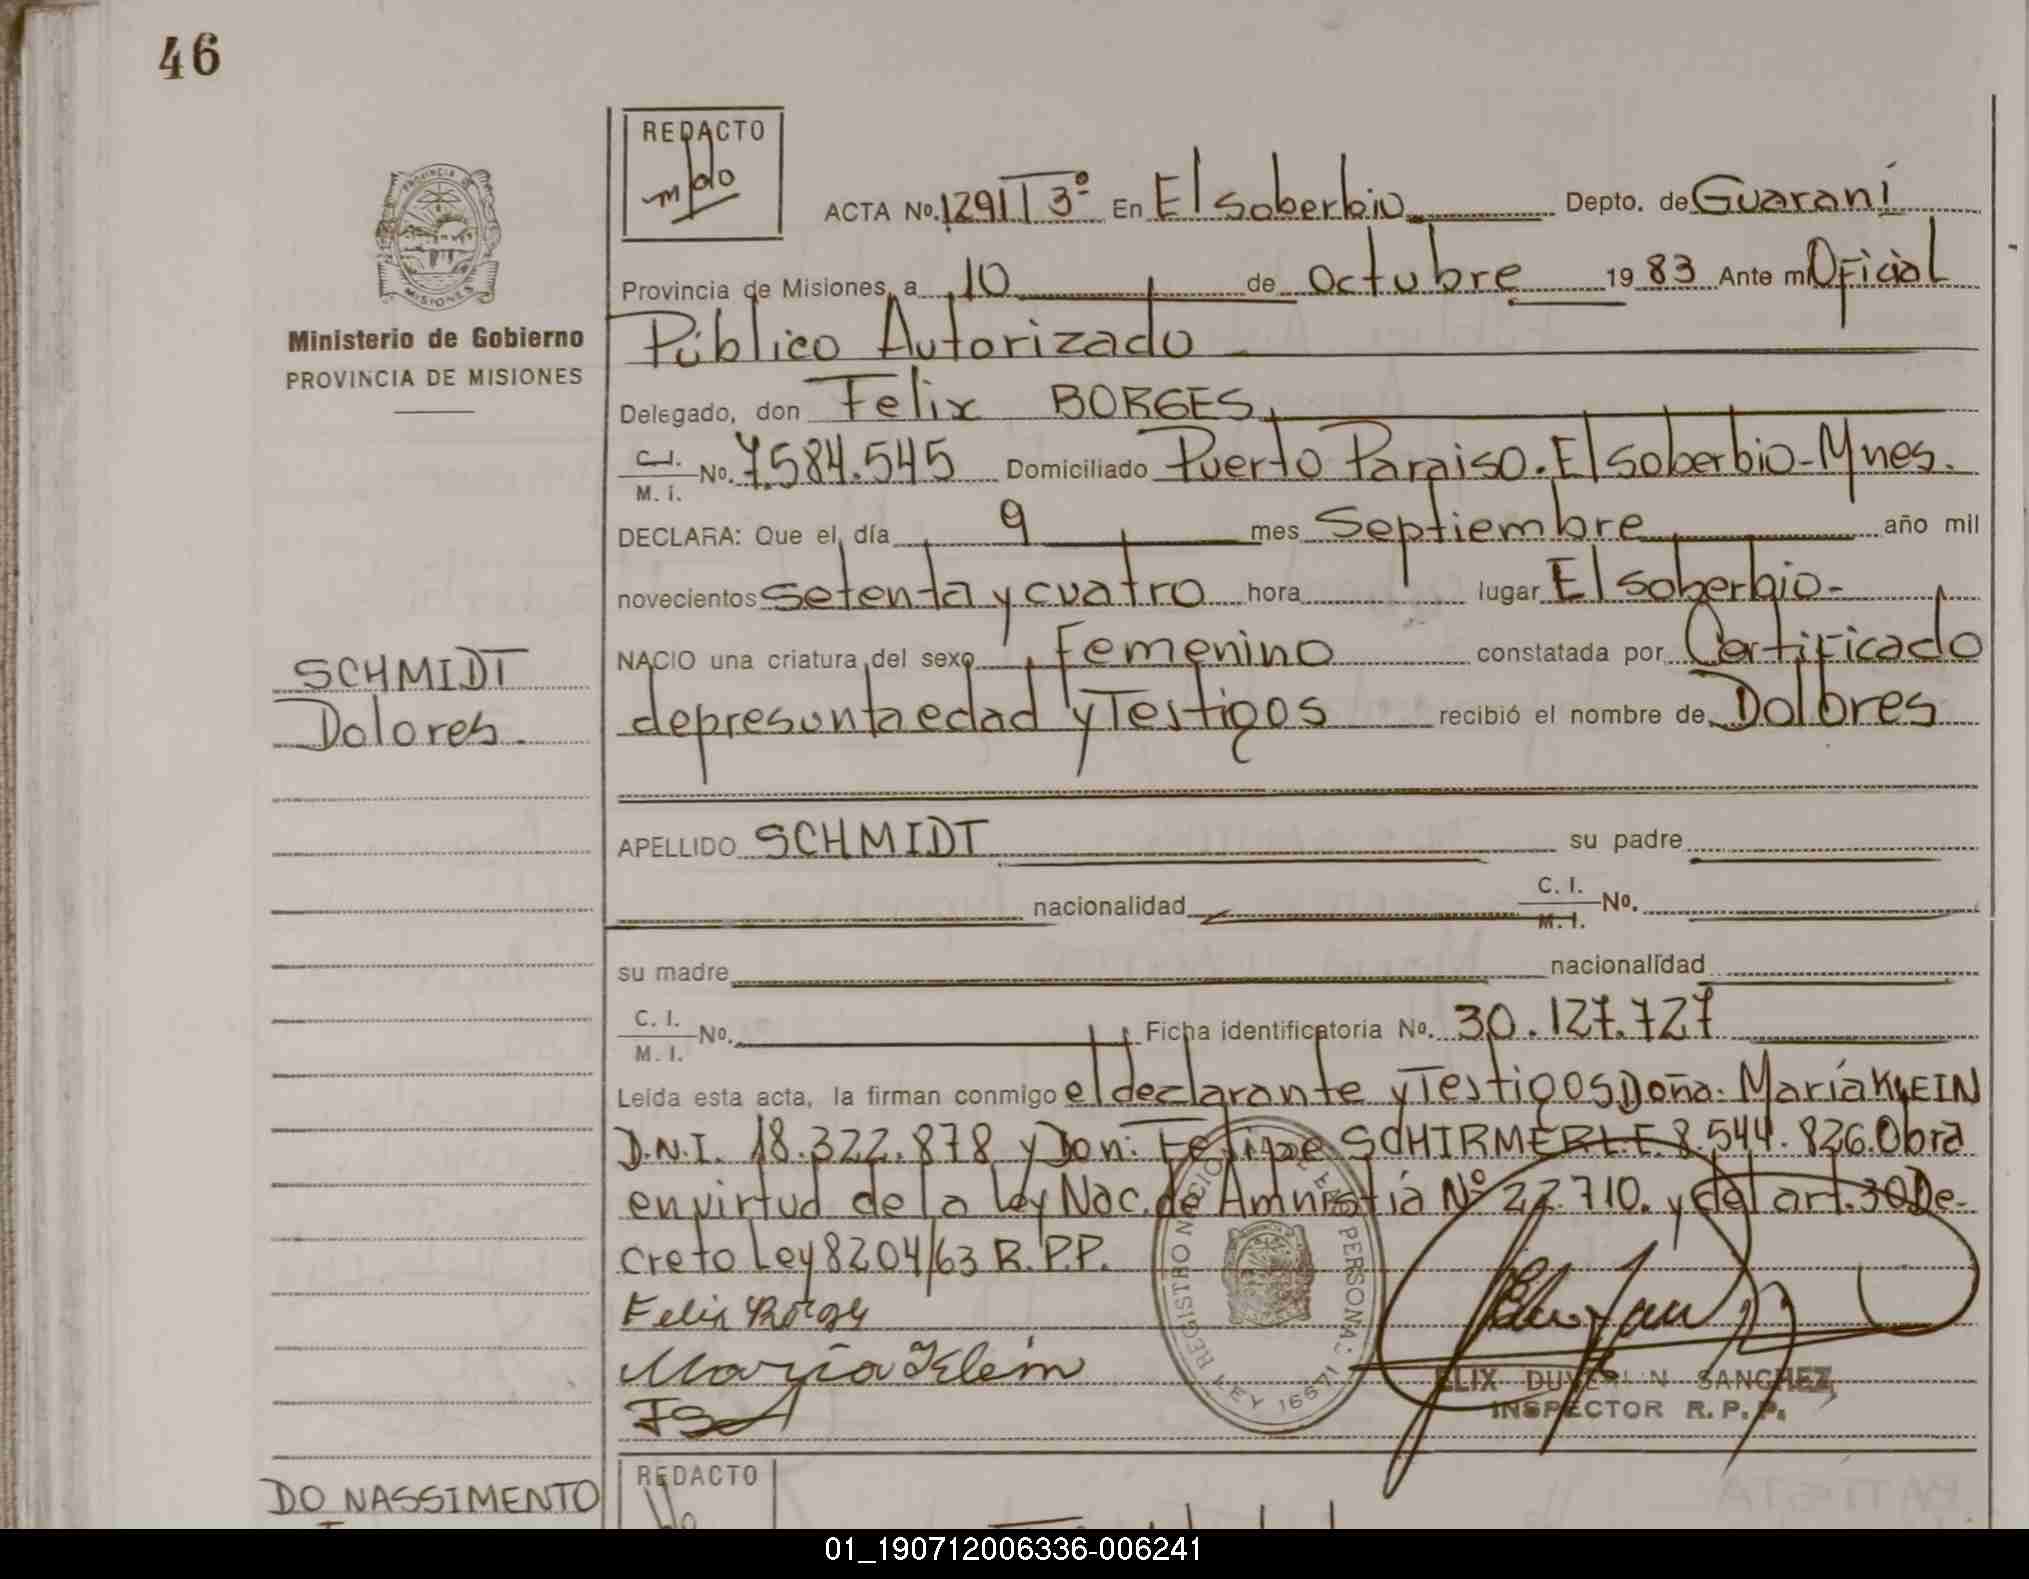 46
REDACTO
PROVINCIA DE
MISIONES
ACTA No. 1291 T 3º En El soberbio Depto. de Guaraní
Provincia de Misiones, a 10 de octubre 1983 Ante mi Oficial
Ministerio de Gobierno
PROVINCIA DE MISIONES
Público Autorizado
Delegado, don Felix BORGES
C.I.
M. I. No. 7.584.545 Domiciliado Puerto Paraiso. El soberbio-Mnes.
DECLARA: Que el día 9 mes Septiembre año mil
novecientos setenta y cuatro hora lugar El soberbio-
SCHMIDT
Dolores.
NACIO una criatura del sexo femenino constatada por Certificado
de presunta edad y Testigos recibió el nombre de Dolores
APELLIDO SCHMIDT su padre
nacionalidad C. I.
M. I. No.
su madre nacionalidad
C. I.
M. I. No. Ficha identificatoria No. 30.127.727
Leída esta acta, la firman conmigo el declarante y Testigos Doña: María KLEIN
D.N.I. 18.322.878 y Don: Felipe SCHIRMER L.E. 8.544.826. Obra
en virtud de la ley Nac. de Amnistía Nº 22.710. y del art. 30 De-
creto Ley 8204/63 R.P.P.
Felix Borges
María Klein
REGISTRO NACIO DE PERSONA
LEY 16671
ELIX DUVERLIN SANCHEZ
INSPECTOR R. P. P.
DO NASSIMENTO
REDACTO
01_190712006336-006241